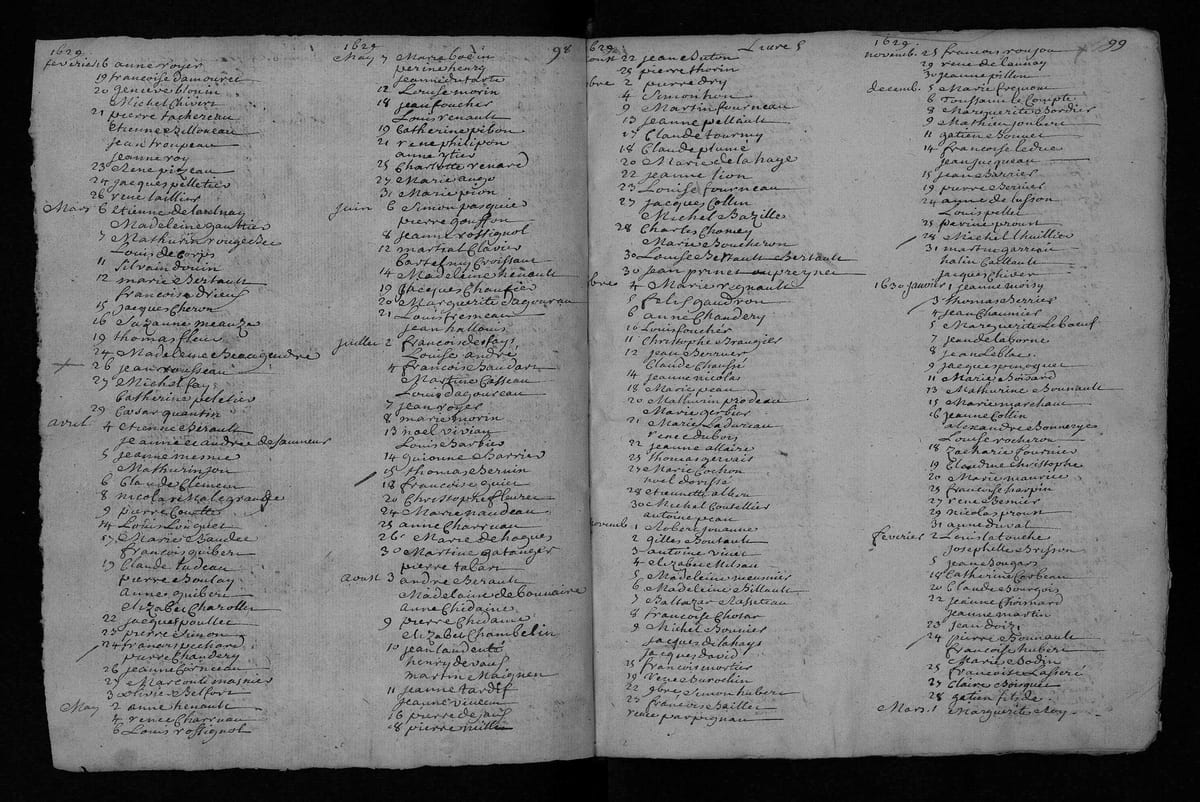 1629
fevrier 16 anne royer
19 francoise damource
20 genevieve blouin
Michel Chivert
21 pierre tachereau
Etienne Billonneau
jean troupeau
jeanne roy
23 Rene pizeau
24 jacques pelletier
26 rene taillier
Mars 6 Etienne de
Madeleine gaultier
7 Mathurin rougebec
Louis de Corps
11 Silvain drouin
12 marie Bertault
francoise drieux
15 jacques Cheron
16 Suzanne meauze
19 thomas fleur
24 Madeleine Beaugendre
26 jean rousseau
27 Michel fay
Catherine peletier
29 Cesar quantin
avril 4 Etienne Berault
jeanne et andree de saumeur
5 jeanne mesme
Mathurin jou
6 Claude Clement
8 nicolas Malegrande
9 pierre Couette
14 Louis Louquet
17 Marie Baudee
francois guibert
19 Claude tadeau
pierre Boulay
Anne guibert
Elizabet Charollet
22 jacques poullet
23 pierre Simon
24 francois pechard
pierre Chandery
26 jeanne Corneau
27 Marc onti masnier
30 olivier Belfort
May 2 anne henault
4 renee Charruau
6 Louis rossignol
1629
98
May 7 Marie boein
perinne henry
jeanne dutarte
12 Louise morin
18 jean foucher
Louis renault
19 Catherine pibon
21 rene philipon
anne ytier
25 Charlotte renard
27 Marie auge
31 Marie pion
juin 6 Simon pasquier
pierre gouffon
8 jeanne rossignol
12 martial Clavier
Bartelmy Croissant
14 Madeleine henault
19 Jacques Chaufier
20 Marguerite dagoureau
21 Louis fresneau
jean hallouis
juillet 2 francois de fays
Louise andre
4 francois Baudart
Martine Casseau
Louis dagoureau
7 jean royer
8 marie morin
13 noel vivian
Louis Barbier
14 guionne Barrier
15 thomas Bernin
18 francoise guiet
20 Christophe fleurie
24 Marie naudeau
25 anne Charruau
26 Marie de hogues
30 Martine gatanger
pierre tabart
aout 3 andre Berault
Madelaine de bonnaire
Anne Chedaine
9 pierre Chedanne
Elizabet Chambelin
10 jean laudente
henry devaux
martine Maignen
11 jeanne tardif
jeanne vineau
16 pierre de faux
18 pierre millet
1629
Livre 5
22 jeane Baton
25 pierre thorin
bre 2 pierre dry
4 Simon hon
9 Martin fourneau
13 jeanne pellault
17 Claude tourny
18 Claude plumé
20 Marie de la haye
22 jeanne Sion
23 Louise fourneau
27 jacques Collin
Michel Bazille
28 Charles Chamey
Marie Boucheron
30 Louise Bertault Bertault
30 jean prinet ou preyner
bres 4 Marie regnault
5 felix gaudron
6 anne Chandery
10 Louis foucher
11 Christophe Brangier
12 jean Berruer
Claude Chausse
14 jeanne nicolas
18 Marie peau
20 Mathurin prodeau
Marie gerbier
21 Marie Ladureau
renee dubois
22 jeanne allaire
25 thomas gervais
27 Marie Cochon
noel dorisse
28 etiennette albert
30 Michel Coutellier
antoine peau
novemb. 1 Robert jouanne
2 gilles Boutault
3 antoine vinet
4 elizabet Milsau
5 Madeleine meusnier
6 Madeleine Billault
7 Baltazar Rasseteau
8 francoise Chotar
9 Michel Bonnier
jacques de lahays
jacques david
15 francois mortier
19 Rene Burochin
22 Simon hubert
23 francoise Baillet
renee parpignau
1629
99
novemb. 25 francois roujou
29 rene de launay
30 jeanne pillon
decemb. 5 Marie frequau
6 Toussaint le Compte
8 Marguerite Bordier
9 Mathieu joubert
11 gatien Bonnet
14 francoise leduc
jean jucqueau
15 jean Barrier
19 pierre Bernier
24 anne de lusson
Louis pellet
25 perine proust
28 Michel thuillier
31 martin garreau
hatin Caillault
jacques Chiver
1630 janvier 1 jeanne moisy
3 thomas Berrier
4 jean Chaumier
5 Marguerite Leboeuf
7 jean delaborne
8 jean leblac
9 jacques pinoquet
11 Marie Boissard
13 Mathurine Bounault
15 Marie marchant
16 jeanne Collin
alexandre Bonnerye
Louise rocheron
18 zacharie fournier
19 Claudine Christophe
20 Marie maurice
25 francoise harpin
27 rene Besnier
29 nicolas proust
31 anne duval
fevrier 2 Louis latouche
Josephelle Brisson
5 jean Bougars
18 Catherine Corbeau
20 Claude Bourgois
22 jeanne Choisnard
jeanne martin
23 jean doiz
24 pierre Bounault
francoise hubert
Marie Bodin
25 francoise Lasseré
27 Claire Boisquet
28 gatien fils de
Mars. 1 Marguerite Roy